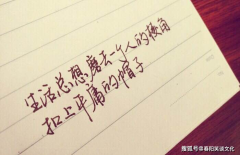 生活总想磨去个人的棱角
扣上平庸的帽子
搜狐号@春阳英语文化